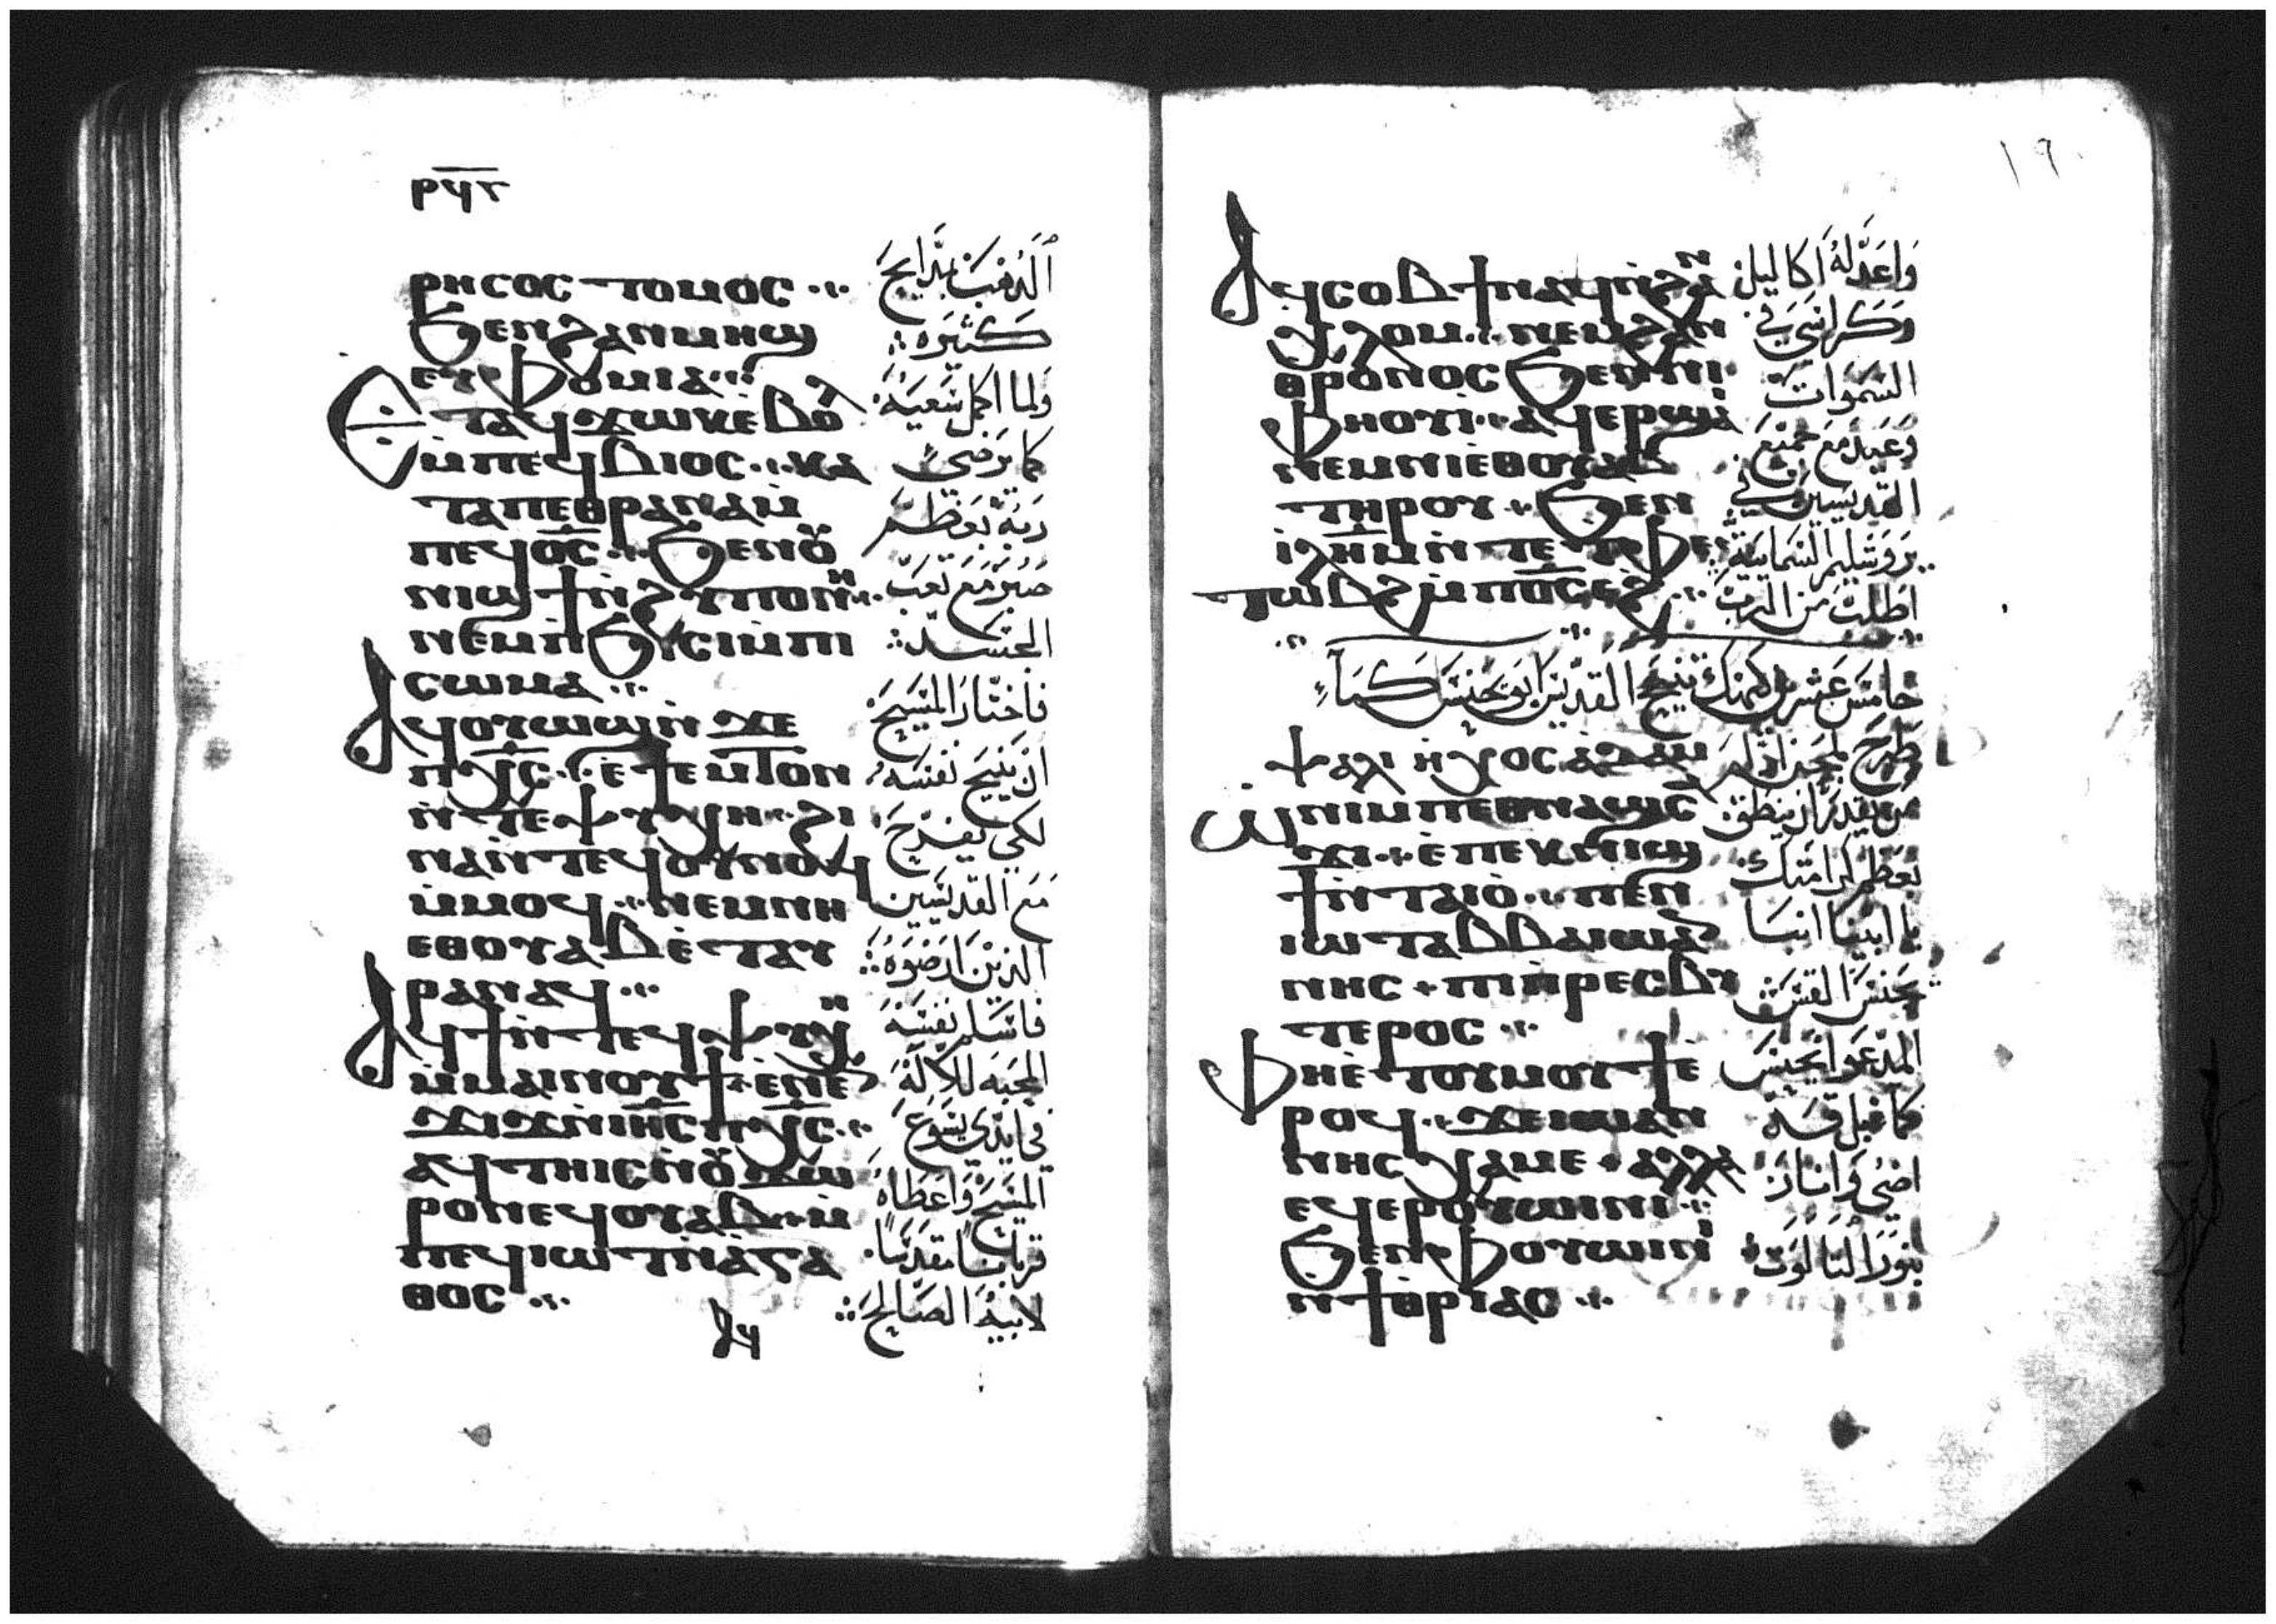 ⲣϥⲅ
ⲣⲏⲥⲟⲥⲧⲟⲙⲟⲥ
ϧⲉⲛϩⲁⲛⲙⲏϣ
ⲉⲩⲫⲟⲙⲓⲁ
ⲉⲧⲁϥϫⲱⲕⲉⲃⲟⲗ
ⲙⲡⲉϥⲃⲓⲟⲥ ⲕⲁ
ⲧⲁⲡⲉⲑⲣⲁⲛⲁⲙ
ⲡⲉϥⲟ̅ⲥ̅ ϧⲉⲛⲟⲩ
ⲛⲓϣϯⲛϩⲩⲡⲟⲙⲟⲛ
ⲛⲉⲙⲡϧⲓⲥⲓⲙⲡⲓ
ⲥⲱⲙⲁ
ⲁϥⲟⲩⲱϣⲛϫⲉ
ⲡⲭ̅ⲥ̅ ⲉϯⲉⲙⲧⲟⲛ
ⲛⲧⲉϥⲯⲩⲭⲏ ϩⲓ
ⲛⲁⲛⲧⲉϥⲟⲩⲛⲟϥ
ⲙⲙⲟϥ ⲛⲉⲙⲛⲏ
ⲉⲑⲟⲩⲁⲃⲉⲧⲁⲩ
ⲣⲁⲛⲁϥ
ⲁϥϯⲛⲧⲉϥⲯⲩⲭⲏ
ⲙⲙⲁⲓⲛⲟⲩϯ ⲉⲛⲉⲛ
ϫⲓϫⲛⲓⲏ̅ⲥ̅ⲡⲭ̅ⲥ̅
ⲁϥⲧⲏⲓⲥⲛⲟⲩϫⲱ
ⲣⲟⲛⲉϥⲟⲩⲁⲃ ⲙ
ⲡⲉϥⲓⲱⲧⲛⲁⲅⲁ
ⲑⲟⲥ
ⲁϥ
الذهب بمدايح
كثيره
ولما اكمل سعيه
كما يرضى
ربه بعظم
صبر مع تعب
الجسد
فاختار المسيح
ان ينيح نفسه
لكي يفرح
مع القديسين
الذين ارضوه
فاسلم نفسه
المحبه للاله
في ايدي يسوع
المسيح واعطاه
قربانا مقدسا
لابيه الصالح
١٩٠
ⲁϥⲥⲟⲃϯⲛⲁϥⲛϩⲁⲛ
ⲭⲗⲟⲙ ⲛⲉⲙϩⲁⲛ
ⲑⲣⲟⲛⲟⲥϧⲉⲛⲛⲓ
ⲫⲏⲟⲩⲓ ⲁϥⲉⲣϣⲁⲓ
ⲛⲉⲙⲛⲓⲉⲑⲟⲩⲁⲃ
ⲧⲏⲣⲟⲩ ϧⲉⲛ
ⲓⲗⲏ̅ⲙ̅ⲛⲧⲉⲧⲫⲉ
ⲧⲱⲃϩⲙⲡⲟ̅ⲥ̅ⲉϩ
واعد له اكاليل
وكراسي في
السموات
وعيد مع جميع
القديسين في
يروشليم السمايية
اطلب من الرب
خامس عشر كيهك تنيح القديس ابو يحنس كماء
ⲯⲁⲗⲓ ⲏⲭⲟⲥⲁⲇⲁⲙ
ⲛⲓⲙⲡⲉⲑⲛⲁϣⲥ
ϫⲓ ⲉⲡⲉⲕⲛⲓϣ
ϯⲛⲧⲁⲓⲟ ⲡⲉⲛ
ⲓⲱⲧⲁⲃⲃⲁⲓⲱⲁⲛ
ⲛⲏⲥ ⲡⲓⲡⲣⲉⲥⲃⲩ
ⲧⲉⲣⲟⲥ
ⲫⲏⲉⲧⲟⲩⲙⲟⲩϯⲉ
ⲣⲟϥ ϫⲉⲓⲱⲁⲛ
ⲛⲏⲥⲭⲁⲙⲉ ⲁⲗⲗⲁ
ⲉϥⲉⲣⲟⲩⲱⲓⲛⲓ
ϧⲉⲛⲫⲟⲩⲱⲓⲛⲓ
ⲛϯⲑⲣⲓⲁⲥ
من يقدر ان ينطق
بعظم كرامتك
يا ابينا انبا
يحنس القس
المدعوا يحنس
اضي وانار
بنور الثالوث